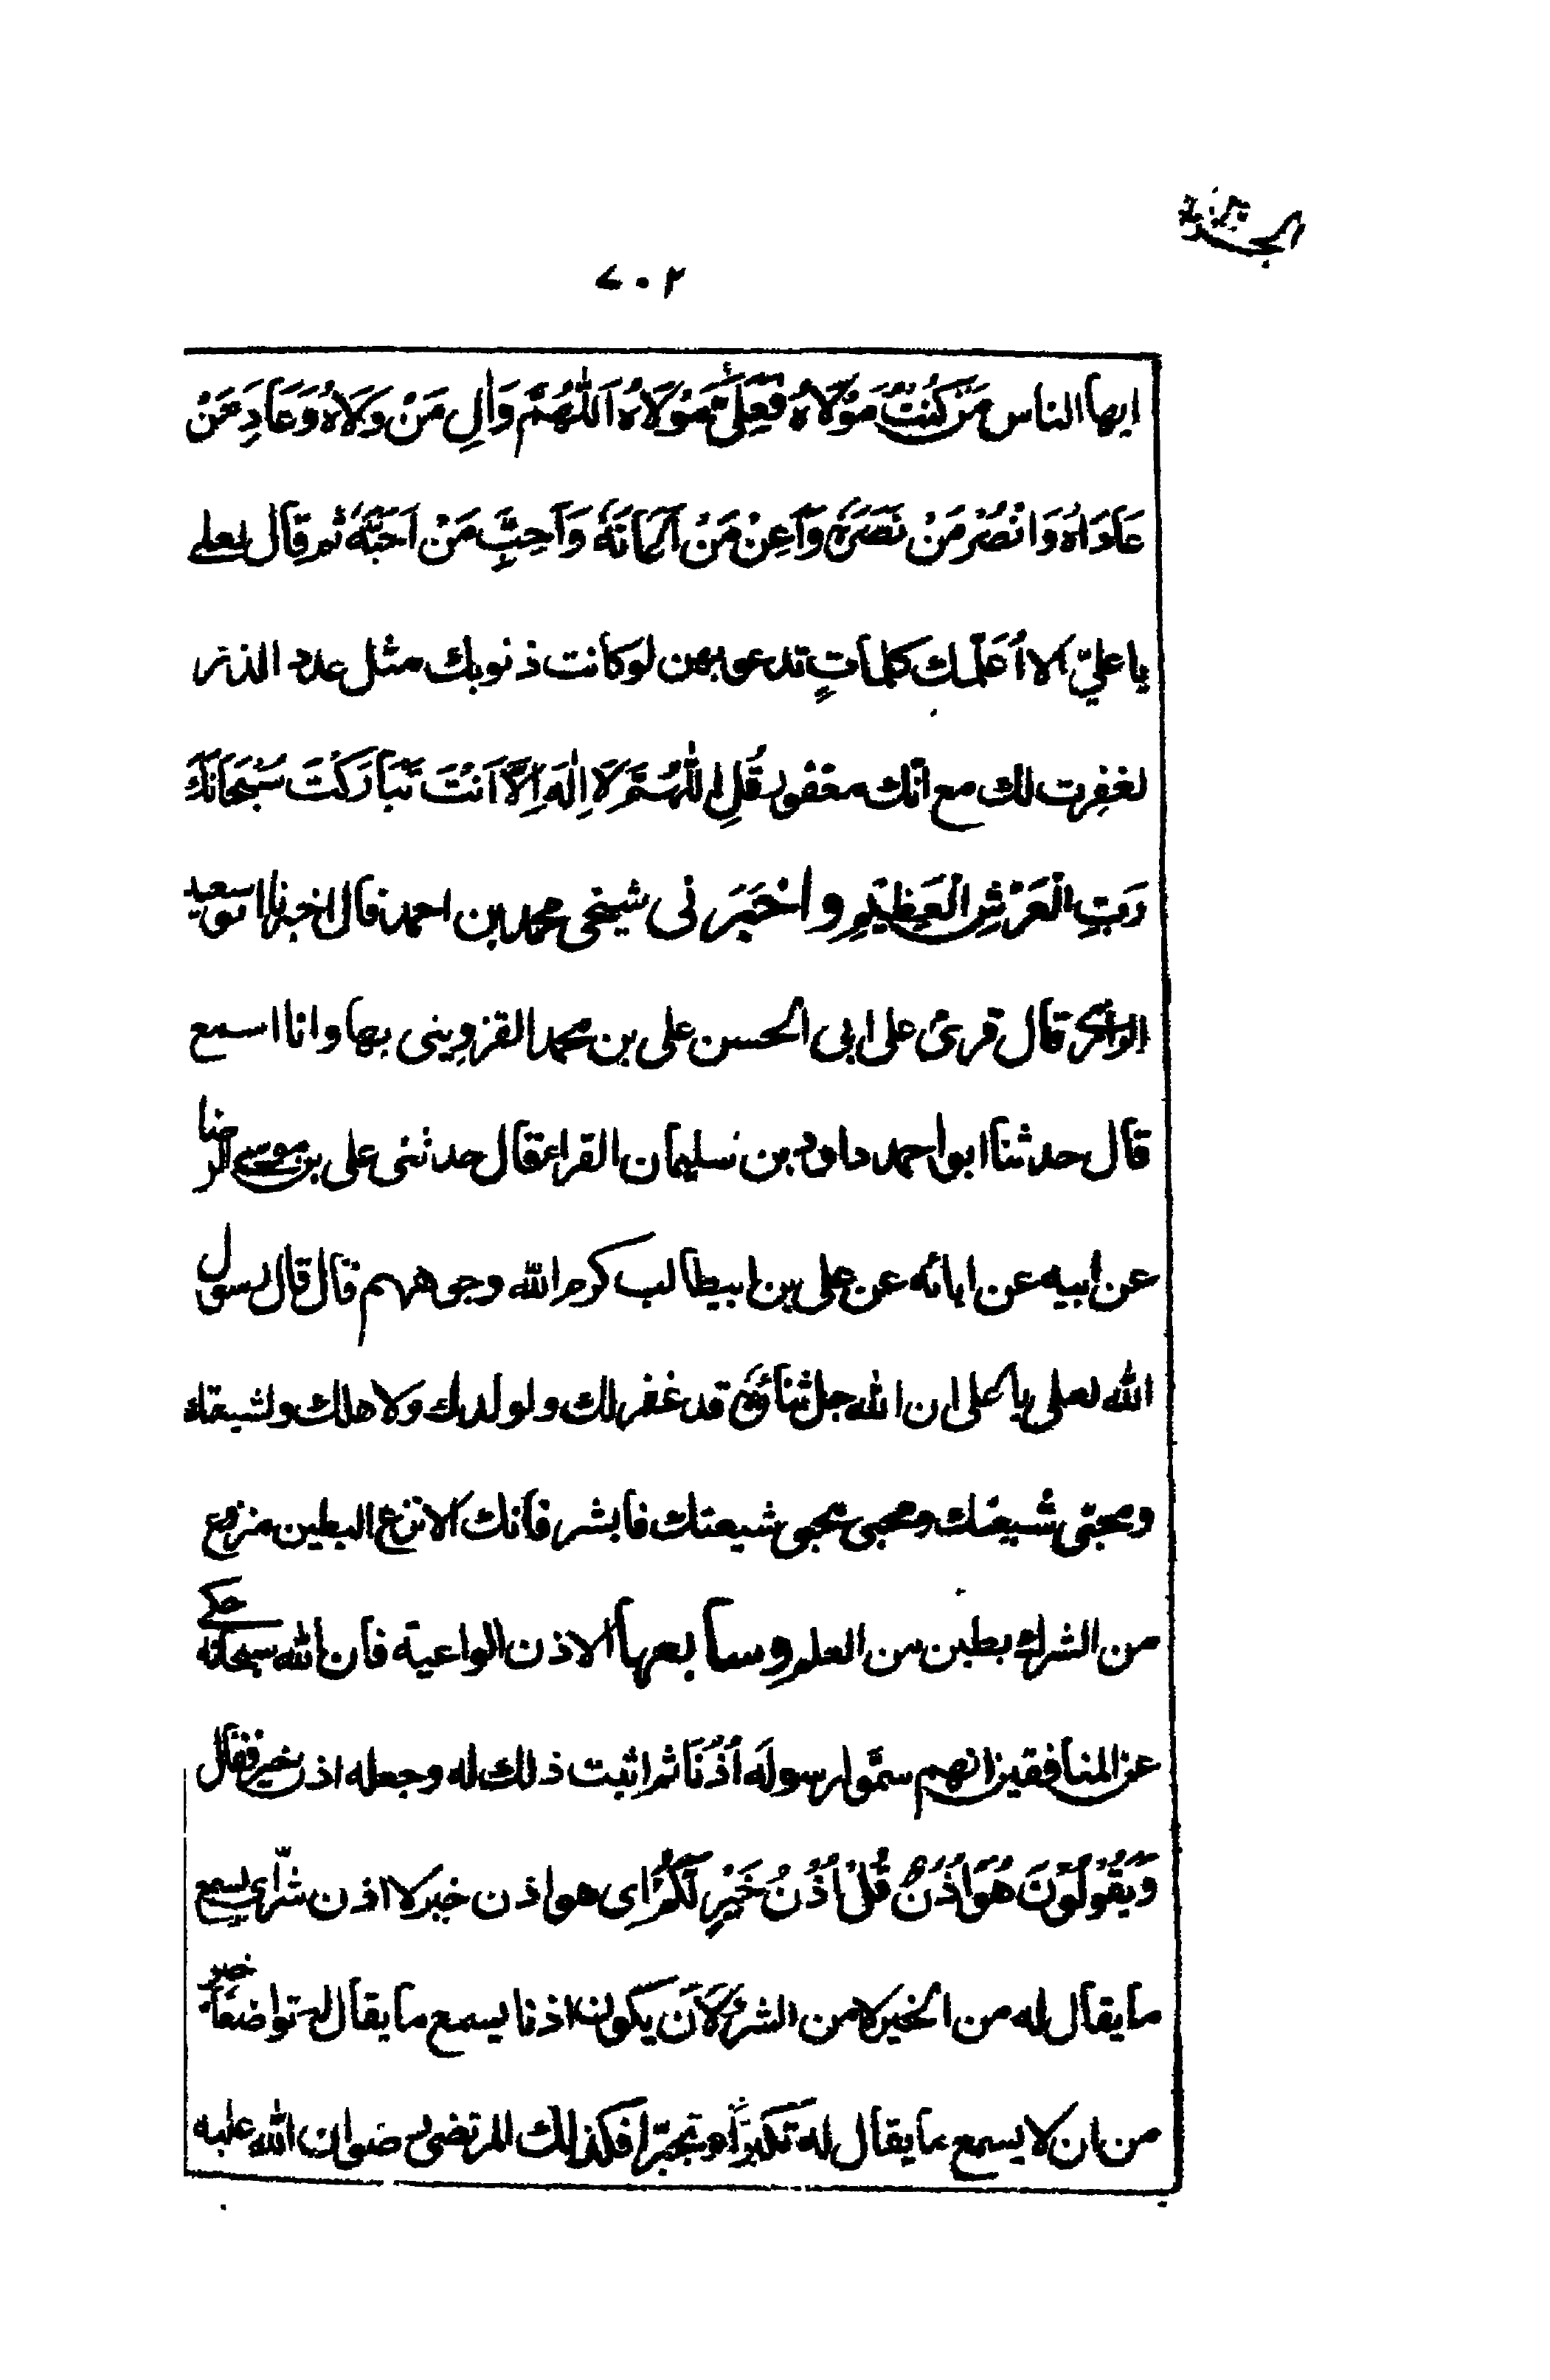 ٧٠٢
ايها الناس مَنْ كُنْتُ مَوْلَاهُ فَعَلِيٌّ مَوْلَاهُ اَللّٰهُمَّ وَالِ مَنْ وَلَاهُ وَعَادِ مَنْ
عَادَاهُ وَانْصُرْ مَنْ نَصَرَهُ وَاَعِنْ مَنْ اَعَانَهُ وَاَحِبِّ مَنْ اَحَبَّهُ ثم قال لعلى
يا عليّ الا اُعَلِّمك كلماتٍ تدعو بهن لو كانت ذنوبك مثل عدد الذر
لغفِرت لك مع انّك مغفور قُلِ اللّٰهُمَّ لَا اِلٰهَ اِلَّا اَنْتَ تَبَارَكْتَ سُبْحَانَكَ
رَبِّ الْعَرْشِ الْعَظِيْمِ و اخْبَرَنى شيخى محمد بن احمد قال اخبرنا ابو سعيد
قال قرئ على ابى الحسن على بن محمد القزوينى بها وانا اسمع
قال حدثنا ابو احمد داود بن سليمان القراء قال حدثنى على بن موسى الرضا
عن ابيه عن ابائه عن على بن ابيطالب كرم الله وجوههم قال قال رسول
الله لعلى يا على ان الله جل ثناؤه قد غفر لك ولولدك ولاهلك ولشيعتك
ومحبى شيعتك ومحبى محبى شيعتك فابشر فانك الانزع البطين منزوع
من الشرك بطين من العلم وسابعها الاذن الواعية فان الله سبحانه حكى
عن المنافقين انهم سمّوا رسوله اُذُنَا ثم اثبت ذلك له وجعله اذن خير فقال
وَيَقُوْلُوْنَ هُوَ اُذُنٌ قُلْ اُذُنُ خَيْرٍ لَّكُمْ اى هو اذن خير لا اذن شرّ اى يسمع
ما يقال له من الخير لا من الشر لَاَن يكون اذنا يسمع ما يقال له تواضعًا خير
من ان لا يسمع ما يقال له تكبرًا وتجبّرا فكذلك المرتضى رضوان الله عليه